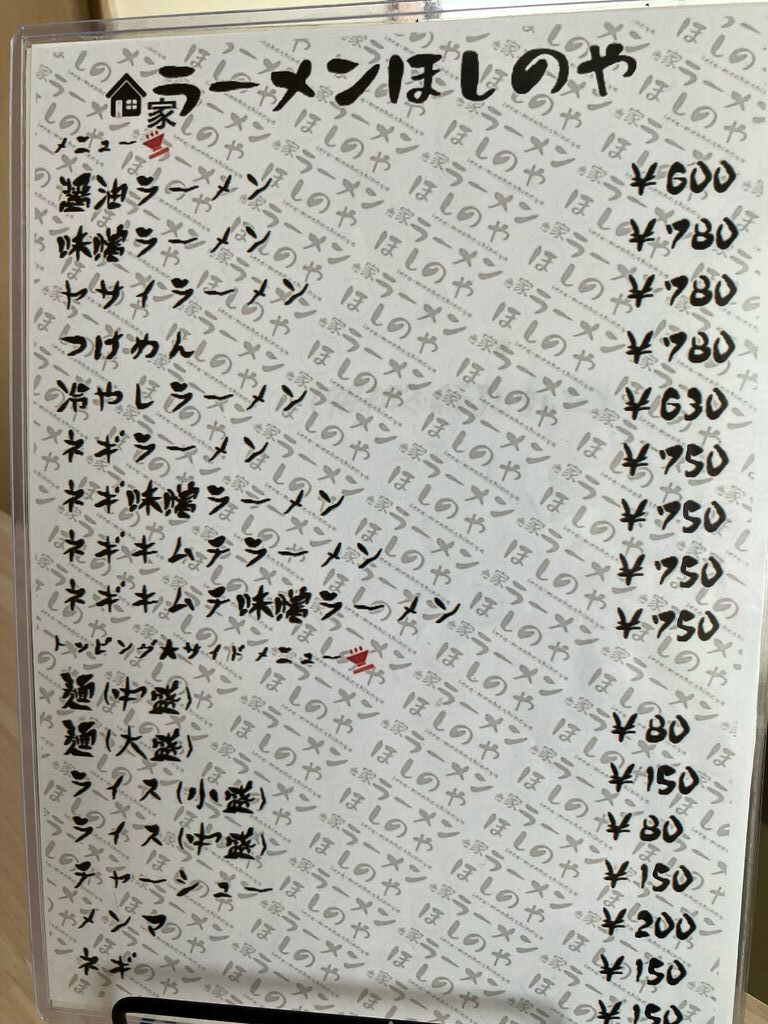 家ラーメンほしのや
メニュー
醤油ラーメン ¥600
味噌ラーメン ¥780
ヤサイラーメン ¥780
つけめん ¥780
冷やしラーメン ¥630
ネギラーメン ¥750
ネギ味噌ラーメン ¥750
ネギキムチラーメン ¥750
ネギキムチ味噌ラーメン ¥750
トッピング★サイドメニュー
麺(中盛) ¥80
麺(大盛) ¥150
ライス(小盛) ¥80
ライス(中盛) ¥150
チャーシュー ¥200
メンマ ¥150
ネギ ¥150